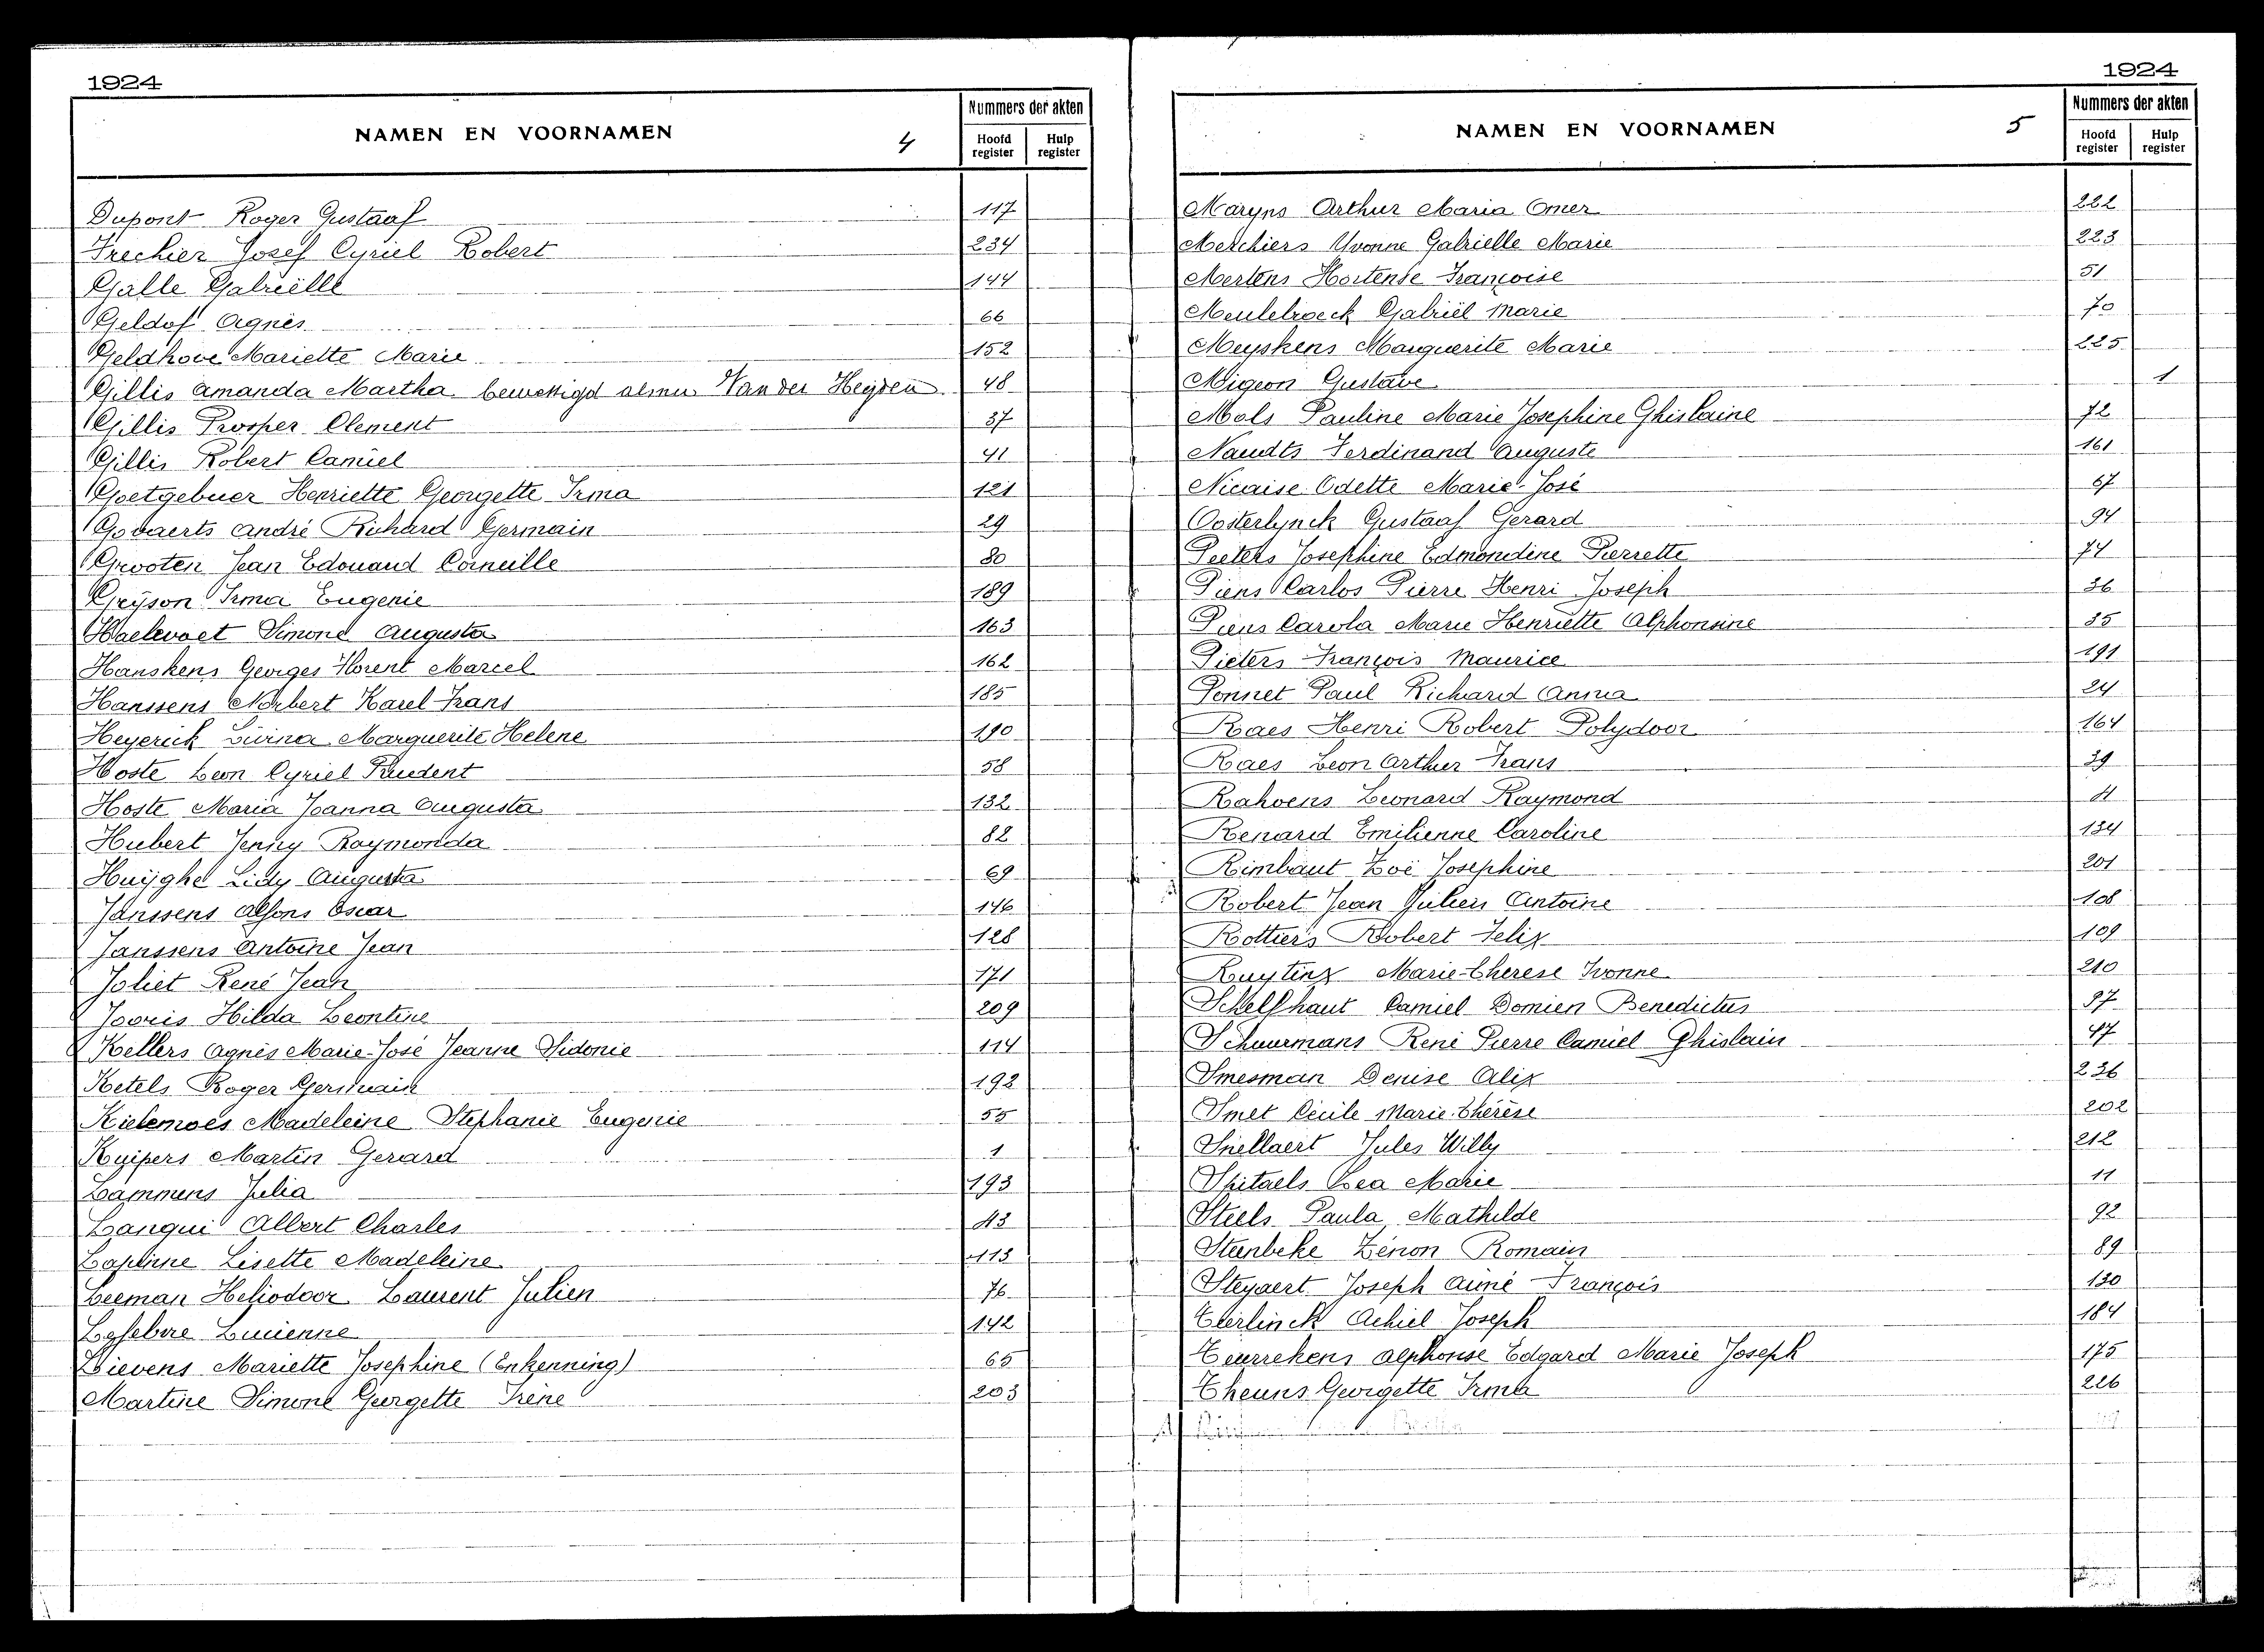 1924
NAMEN EN VOORNAMEN 4 Nummers der akten
Hoofd register Hulp register
Dupont Roger Gustaaf 117
Frechier Josef Cyriel Robert 234
Galle Gabriëlle 144
Geldof Agnès 66
Geldhove Mariette Marie 152
Gillis Amanda Martha bewettigd Van der Heyden 48
Gillis Prosper Clement 37
Gillis Robert Camiel 41
Goetgebuer Henriette Georgette Irma 121
Govaerts André Richard Germain 29
Grooten Jean Edouard Corneille 80
Gryson Irma Eugenie 189
Haelevoet Simone Augusta 163
Hanskens Georges Florent Marcel 162
Hanssens Norbert Karel Frans 185
Heyerick Livina Marguerite Helene 190
Hoste Leon Cyriel Prudent 58
Hoste Maria Joanna Augusta 132
Hubert Jenny Raymonda 82
Huÿghe Lidy Augusta 69
Janssens Alfons Oscar 146
Janssens Antoine Jean 128
Joliet René Jean 171
Jooris Hilda Leontine 209
Kellers Agnès Marie-José Jeanne Sidonie 114
Ketels Roger Germain 192
Kielemoes Madeleine Stephanie Eugenie 55
Kuipers Martin Gerard 1
Lammens Julia 193
Lanqui Albert Charles 43
Lapiirre Lisette Madeleine 113
Leeman Heliodoor Laurent Julien 76
Lefebvre Lucienne 142
Lievens Mariette Josephine (Erkenning) 65
Martine Simone Georgette Irène 203
1924
NAMEN EN VOORNAMEN 5 Nummers der akten
Hoofd register Hulp register
Maryns Arthur Maria Omer 222
Merchiers Yvonne Gabrielle Marie 223
Mertens Hortense Françoise 51
Meulebroeck Gabriël Marie 70
Meyskens Marguerite Marie 225
Migeon Gustave 1
Mols Pauline Marie Josephine Ghislaine 72
Naudts Ferdinand Auguste 161
Nicaise Odette Marie-José 67
Oosterlynck Gustaaf Gerard 94
Peeters Josephine Edmondine Pierrette 74
Piens Carlos Pierre Henri Joseph 36
Piens Carola Marie Henriette Alphonsine 35
Pieters François Maurice 191
Ponnet Paul Richard Anna 24
Raes Henri Robert Polydoor 164
Raes Leon Arthur Frans 39
Rahoens Leonard Raymond
Renard Emilienne Caroline 134
Rimbaut Zoë Josephine 201
Robert Jean Julien Antoine 108
Rottiers Robert Felix 109
Ruytinx Marie-Therese Ivonne 210
Schelfhaut Camiel Domien Benedictus 97
Schuurmans René Pierre Camiel Ghislain 47
Smesman Denise Alix 236
Smet Cécile Marie-Thérèse 202
Snellaert Jules Willy 212
Spitaels Lea Marie 11
Steels Paula Mathilde 92
Steenbeke Zénon Romain 89
Steyaert Joseph Aimé François 130
Teirlinck Achiel Joseph 184
Teurrekens Alphonse Edgard Marie Joseph 175
Theuns Georgette Irma 226